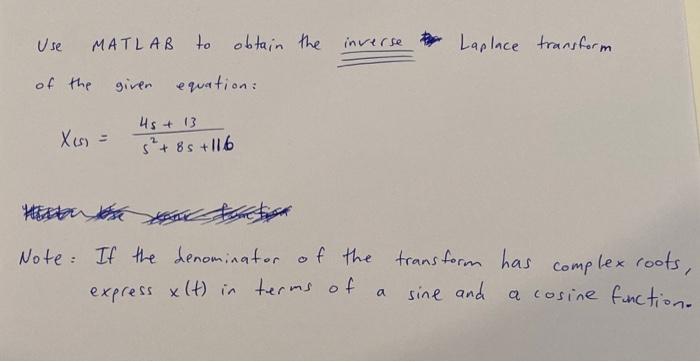 Use MATLAB to obtain the inverse Laplace transform
of the given equation:
X(s) = 4s + 13 / s² + 8s + 116
Note: If the denominator of the transform has complex roots,
express x(t) in terms of a sine and a cosine function.